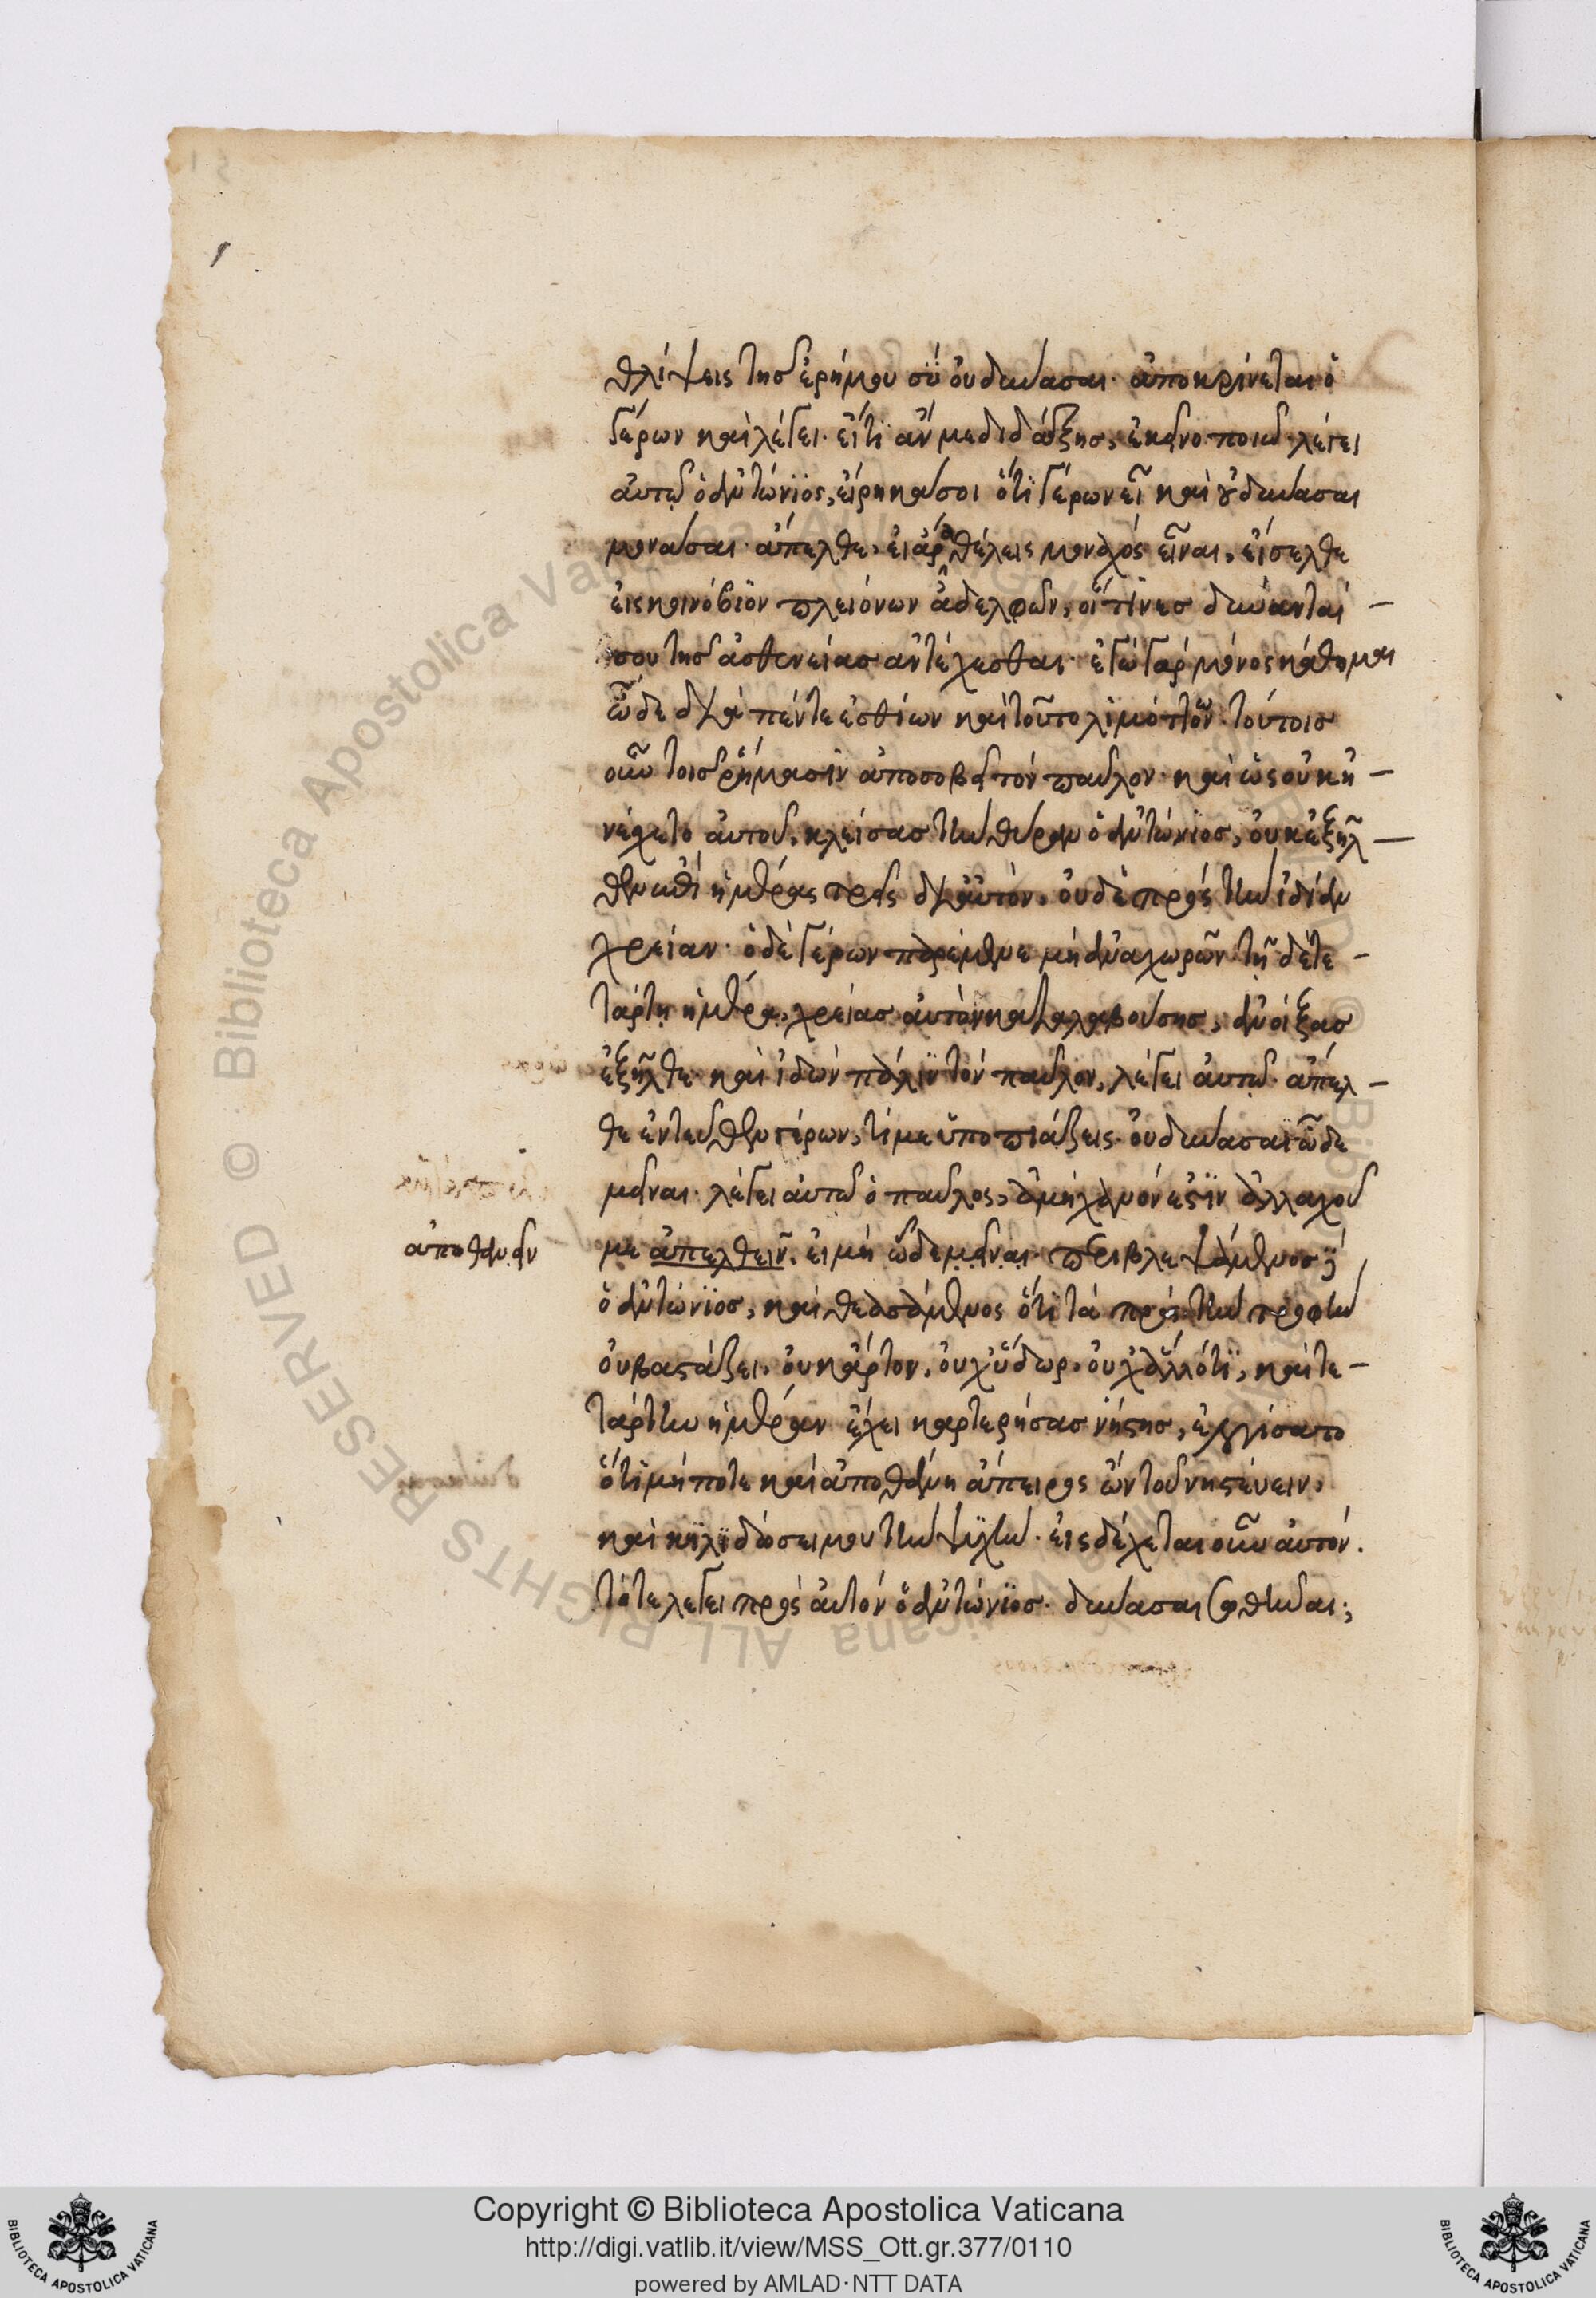 θλίψεις τῆς ἐρήμου σὺ οὐ δύνασαι· ἀποκρίνεται ὁ
γέρων καὶ λέγει· εἴ τι ἄν με διδάξης, ἐκεῖνο ποιῶ· λέγει
αὐτῶ ὁ ἀντώνϊος, εἴρηκά σοι ὅτι γέρων εἶ καὶ οὐ δύνασαι
μονάσαι· ἄπελθε, εἰ ἄρα θέλεις μοναχὸς εἶναι, εἴσελθε
εἰς κοινόβϊον πλειόνων ἀδελφῶν, οἵτινες δύνανταί –
σου τῆς ἀσθενείας ἀντέχεσθαι· ἐγὼ γὰρ μόνος κάθημαι
ὧδε διὰ πέντε ἐσθίων καὶ τοῦτο λιμώττων· τούτοις
οὖν τοῖς ῥήμασιν ἀποσοβεῖ τὸν παῦλον· καὶ ὡς οὐκ ἠ –
νέχετο αὐτοῦ, κλείσας τὴν θύραν ὁ ἀντώνϊος, οὐκ ἐξῆλ –
θεν ἐπὶ ἡμέρας τρεῖς δι' αὐτὸν, οὐδὲ πρὸς τὴν ἰδίαν
χρείαν· ὁ δὲ γέρων παρέμενε μὴ ἀναχωρῶν· τῆ δὲ τε –
τάρτη ἡμέρα, χρείας αὐτὸν καταλαβούσης, ἀνοίξας
ἐξῆλθε· καὶ ἰδὼν πάλιν τὸν παῦλον, λέγει αὐτῶ· ἄπελ –
θε ἐντεῦθεν γέρων, τί με ὑποπιάζεις· οὐ δύνασαι ὧδε
μεῖναι· λέγει αὐτῶ ὁ παῦλος, ἀμήχανόν ἐστϊν ἀλλαχοῦ
ἀποθανεῖν
με ἀπελθεῖν, εἰ μὴ ὧδε μεῖναι· περιβλεψάμενος
ὁ ἀντώνϊος, καὶ θεασάμενος ὅτι τὰ πρὸς τὴν τροφὴν
οὐ βαστάζει, οὐκ ἄρτον, οὐχ ὕδωρ, οὐκ ἄλλό τϊ, καὶ τε –
τάρτην ἡμέραν ἔχει καρτερήσας νῆστις, ἐλογίσατο
ὅτι μήποτε καὶ ἀποθάνη ἄπειρος ὢν τοῦ νηστεύειν,
καὶ κηλιδώσει μου τὴν ψυχήν· εἰσδέχεται οὖν αὐτόν.
τότε λέγει πρὸς αὐτὸν ὁ ἀντώνϊος· δύνασαι σωθῆναι;
Copyright © Biblioteca Apostolica Vaticana
http://digi.vatlib.it/view/MSS_Ott.gr.377/0110
powered by AMLAD·NTT DATA